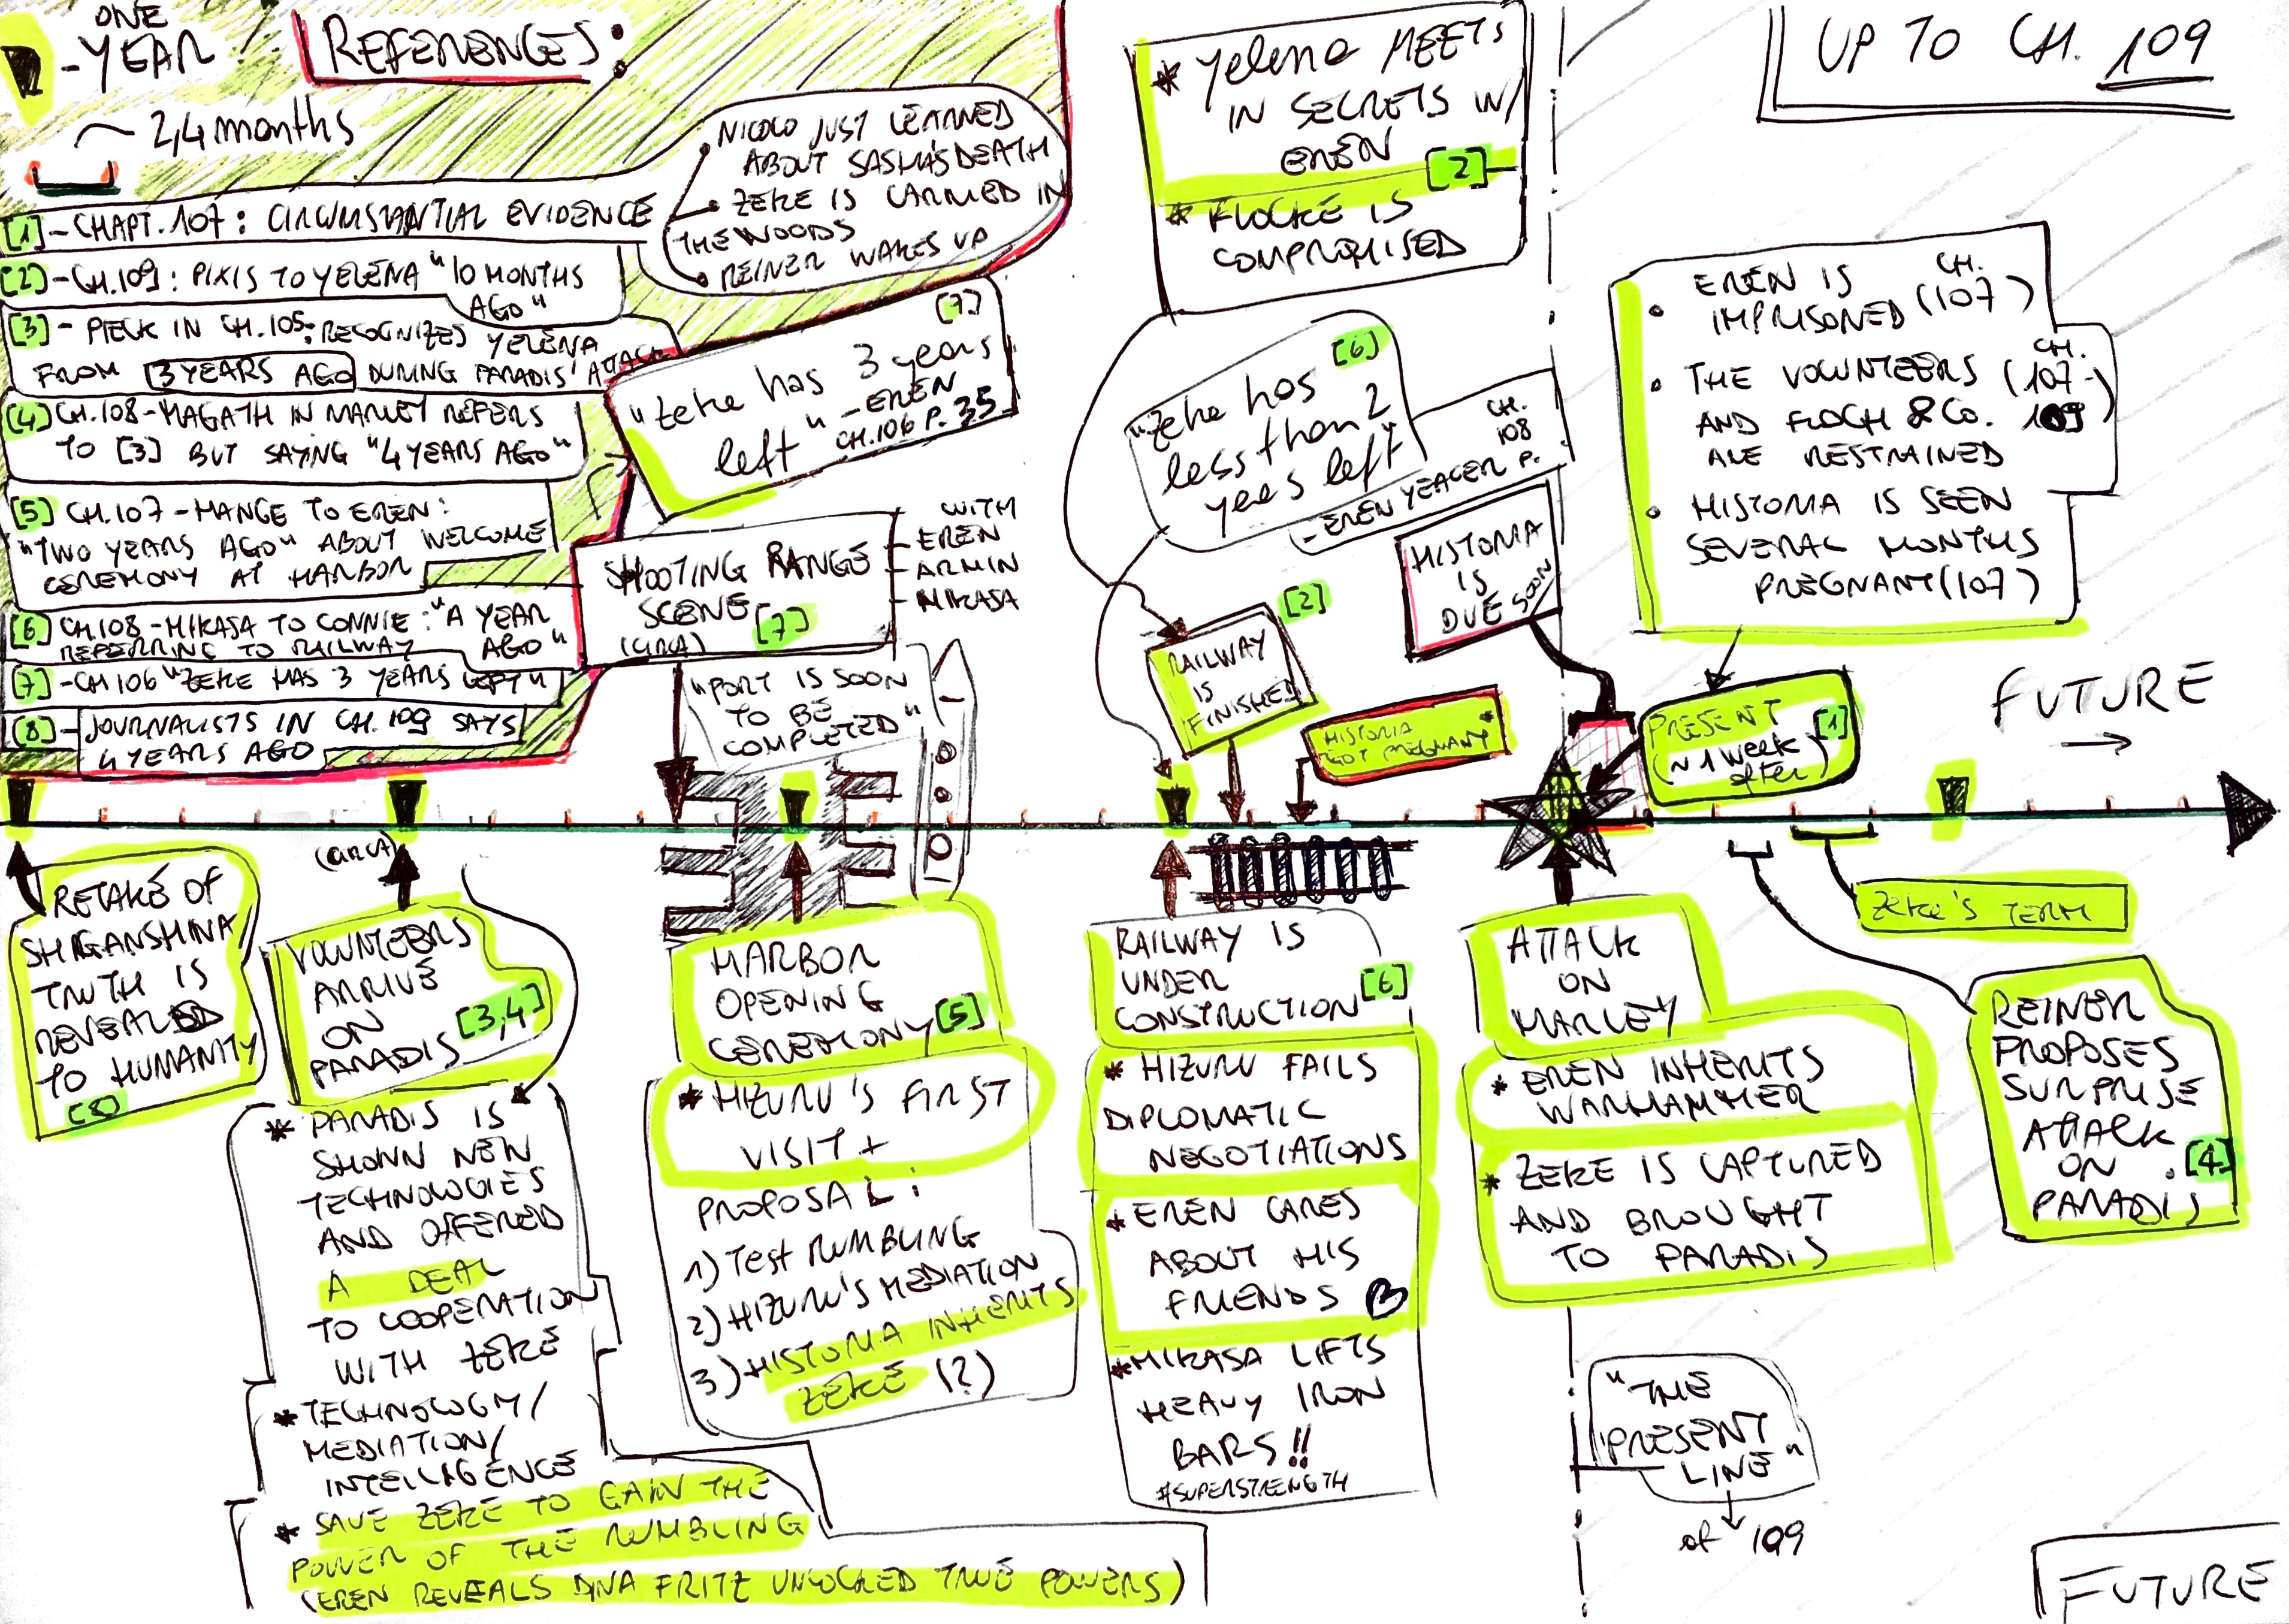 ONE
-YEAR
~ 2,4 months
REFERENCES:
UP TO CH. 109
[1] - CHAPT. 107 : CIRCUMSTANTIAL EVIDENCE
[2] - CH. 109 : PIXIS TO YELENA "10 MONTHS
AGO"
[3] - PIECK IN CH. 105: RECOGNIZES YELENA
FROM 3 YEARS AGO DURING PARADIS' ATTACK
[4] CH. 108 - MAGATH IN MARLEY REFERS
TO [3] BUT SAYING "4 YEARS AGO"
[5] CH. 107 - HANGE TO EREN :
"TWO YEARS AGO" ABOUT WELCOME
CEREMONY AT HARBOR
[6] CH. 108 - MIKASA TO CONNIE : "A YEAR
AGO"
REFERRING TO RAILWAY
[7] - CH 106 "ZEKE HAS 3 YEARS LEFT"
[8] - JOURNALISTS IN CH. 109 SAYS
4 YEARS AGO
• NICOLO JUST LEARNED
ABOUT SASHA'S DEATH
• ZEKE IS CARRIED IN
THE WOODS
• REINER WAKES UP
[7]
"Zeke has 3 years
left" - EREN
CH. 106 P. 35
SHOOTING RANGE
SCENE [7]
(CIRCA)
WITH
- EREN
- ARMIN
- MIKASA
"PORT IS SOON
TO BE
COMPLETED"
* Yelena MEETS
IN SECRETS W/
EREN [2]
* FLOCKE IS
COMPROMISED
[6]
"Zeke has
less than 2
years left"
- EREN YEAGER P.
CH.
108
[2]
RAILWAY
IS
FINISHED
HISTORIA
IS
DUE SOON
HISTORIA *
GOT PREGNANT
• EREN IS CH.
IMPRISONED (107)
• THE VOLUNTEERS (CH. 107-
AND FLOCH & Co. 109)
ARE RESTRAINED
• HISTORIA IS SEEN
SEVERAL MONTHS
PREGNANT (107)
PRESENT [1]
(~ 1 week
after)
FUTURE
→
RETAKE OF
SHIGANSHINA
TRUTH IS
REVEALED
TO HUMANITY
[8]
(CIRCA)
VOLUNTEERS
ARRIVE
ON
PARADIS [3,4]
* PARADIS IS
SHOWN NEW
TECHNOLOGIES
AND OFFERED
A DEAL
TO COOPERATION
WITH ZEKE
* TECHNOLOGY/
MEDIATION/
INTELLIGENCE
* SAVE ZEKE TO GAIN THE
POWER OF THE RUMBLING
(EREN REVEALS DINA FRITZ UNLOCKED TRUE POWERS)
HARBOR
OPENING
CEREMONY [5]
* HIZURU'S FIRST
VISIT +
PROPOSAL :
1) Test RUMBLING
2) HIZURU'S MEDIATION
3) HISTORIA INHERITS
ZEKE (?)
RAILWAY IS
UNDER
CONSTRUCTION [6]
* HIZURU FAILS
DIPLOMATIC
NEGOTIATIONS
* EREN CARES
ABOUT HIS
FRIENDS
* MIKASA LIFTS
HEAVY IRON
BARS!!
#SUPERSTRENGTH
ATTACK
ON
MARLEY
* EREN INHERITS
WARHAMMER
* ZEKE IS CAPTURED
AND BROUGHT
TO PARADIS
Zeke's TERM
REINER
PROPOSES
SURPRISE
ATTACK
ON [4]
PARADIS
"THE
PRESENT
LINE"
of 109
FUTURE